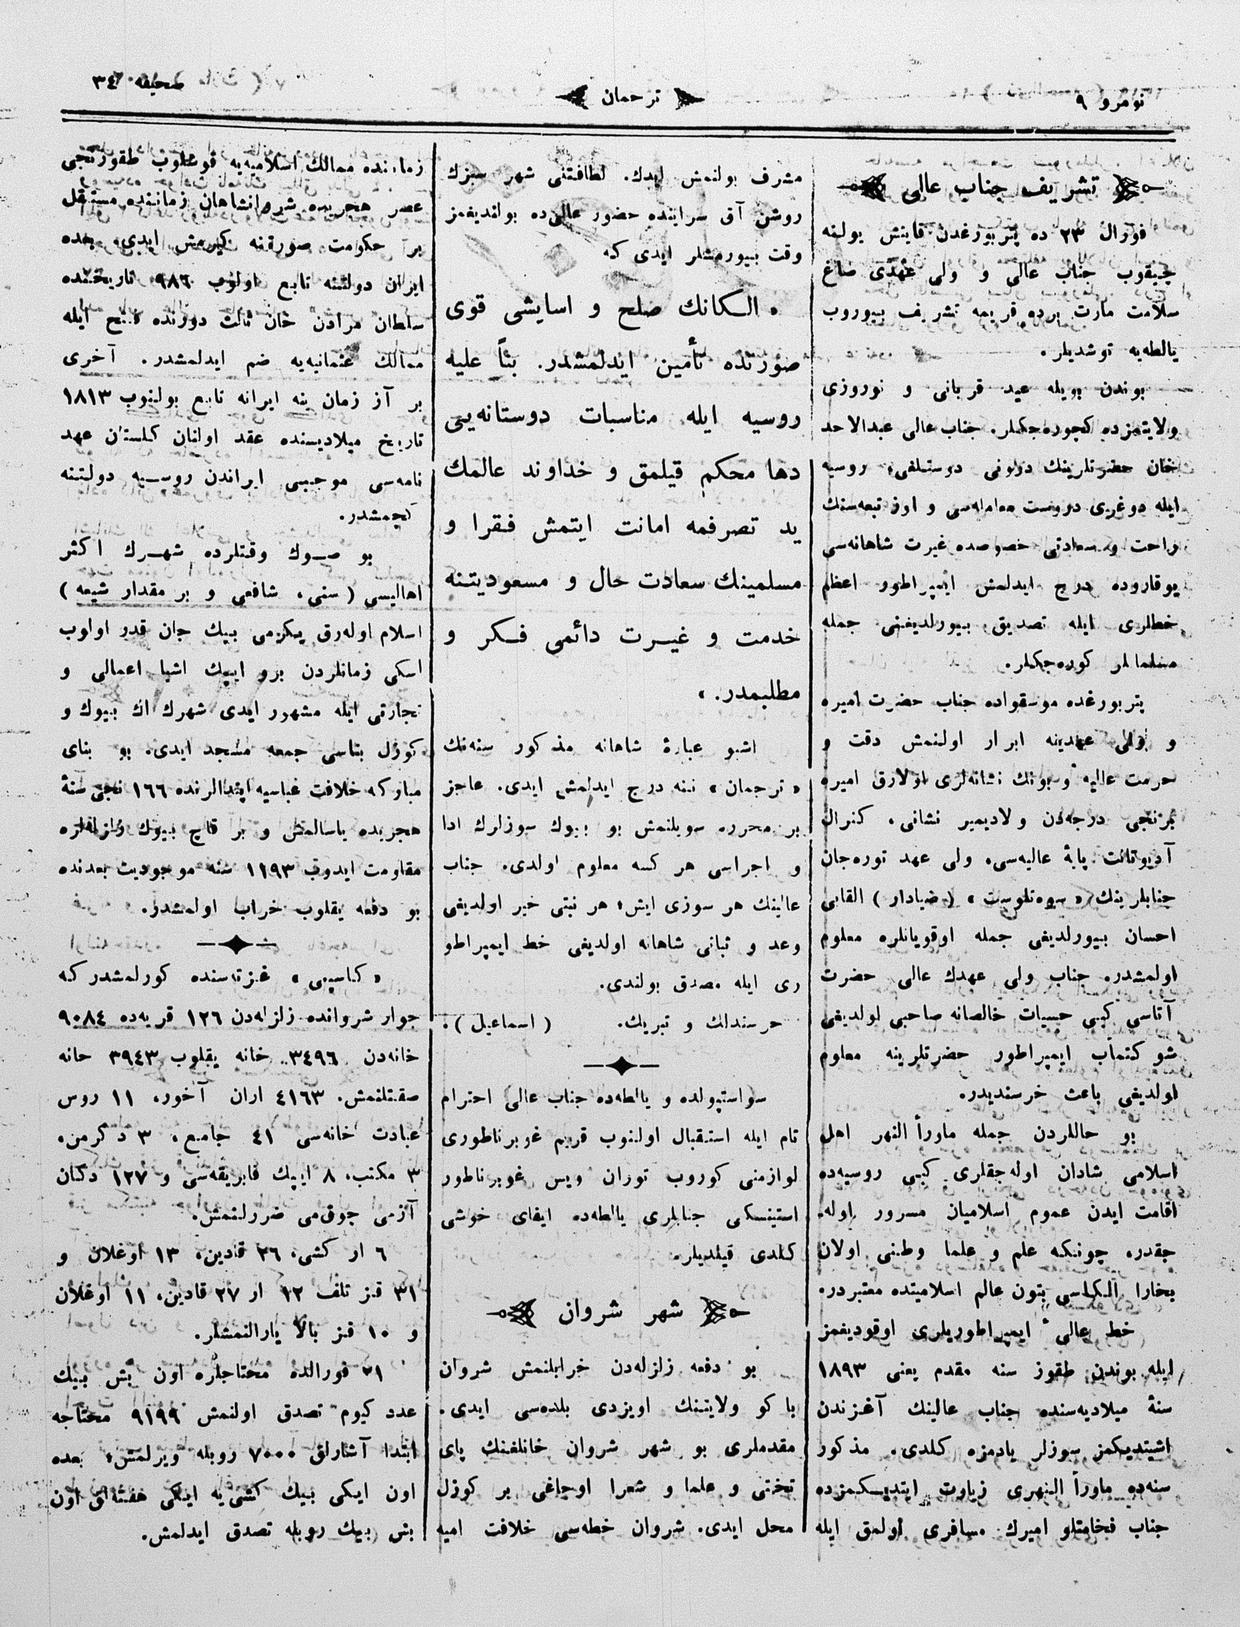 نومرو ٩
ترجمان
صحيفه ٣٤
تشريف جناب عالى
فورال ٢٣ ده پتربورغدن قايتش يولينه
چيقوب جناب عالى و ولى عهدى صاغ
سلامت مارت برده قريمه تشريف بيوروب
يالطه‌يه توشديلر.
بوندن بويله عيد قربانى و نوروزى
ولايتمزده كچوره‌جكلر. جناب عالى عبدالاحد
خان حضرتلرينك دولونى دوستلغى، روسيه
ايله دوغرى دوست معامله‌سى و اوز تبعه‌سنك
راحت و سعادتى خصوصده غيرت شاهانه‌سى
يوقاروده درج ايدلمش ايمپراطور اعظم
خطلرى ايله تصديق بيورلديغنى جمله
مسلمانلر كوره‌جكلر.
پتربورغده موسقواده جناب حضرت اميره
و ولى عهدينه ابرار اولنمش دقت و
حرمت عاليه و بونك نشانه‌لرى اولارق اميره
برنجى درجه‌دن ولاديمير نشانى، كنرال
آديوتانت پايهٔ عاليه‌سى، ولى عهد توره‌جان
جنابلرينك «سوه‌تلوست» (ضيادار) القابى
احسان بيورلديغى جمله اوقويانلره معلوم
اولمشدر. جناب ولى عهدك عالى حضرت
آتاسى كبى حسيات خالصانه صاحبى اولديغى
شوكتماب ايمپراطور حضرتلرينه معلوم
اولديغى باعث خرسنديدر.
بو حاللردن جمله ماورأ النهر اهل
اسلامى شادان اوله‌جقلرى كبى روسيه‌ده
اقامت ايدن عموم اسلاميان مسرور اوله‌
جقدر، چونكه علم و علما وطنى اولان
بخارا الكاسى بتون عالم اسلاميتده معتبردر.
خط عالىء ايمپراطوريلرى اوقوديغمز
ايله بوندن طقوز سنه مقدم يعنى ١٨٩٣
سنهٔ ميلاديه‌سنده جناب عالينك آغزندن
اشيتديكمز سوزلر يادمزه كلدى. مذكور
سنه‌ده ماورأ النهرى زيارت ايتديكمزده
جناب فخامتلو اميرك مسافرى اولمق ايله
مشرف بولنمش ايدك. لطافتنى شهر سبزك
روشن آق سراينده حضور عالى‌ده بولنديغمز
وقت بيورمشلر ايدى كه
« الكانك صلح و اسايشى قوى
صورتده تأمين ايدلمشدر. بنأ عليه
روسيه ايله مناسبات دوستانه‌يى
دها محكم قيلمق و خداوند عالمك
يد تصرفمه امانت ايتمش فقرا و
مسلمينك سعادت حال و مسعوديتنه
خدمت و غيرت دائمى فكر و
مطلبمدر. »
اشبو عبارهٔ شاهانه مذكور سنه‌نك
«ترجمان» ننه درج ايدلمش ايدى. عاجز
بر محرره سويلنمش بو بيوك سوزلرك ادا
و اجراسى هر كسه معلوم اولدى. جناب
عالينك هر سوزى ايش؛ هر نيتى خير اولديغى
وعد و ثبانى شاهانه اولديغى خط ايمپراطو
رى ايله مصدق بولندى.
خرسندلك و تبريك. (اسماعيل).
سواستپولده و يالطه‌ده جناب عالى احترام
تام ايله استقبال اولنوب قريم غوبرناطورى
لوازمنى كوروب توران ويس غوبرناطور
استينسكى جنابلرى يالطه‌ده ايفاى خوشى
كلدى قيلديلر.
شهر شروان
بو دفعه زلزله‌دن خرابلنمش شروان
باكو ولايتنك اويزدى بلده‌سى ايدى.
مقدملرى بو شهر شروان خانلغنك پاى
تختى و علما و شعرا اوجاغى بر كوزل
محل ايدى. شروان خطه‌سى خلافت اميه
زماننده ممالك اسلاميه‌يه قوشلوب طقوزنجى
عصر هجريده شروانشاهان زماننده مستقل
بر حكومت صورتنه كيرمش ايدى. بعده
ايران دولتنه تابع اولنوب ٩٨٦ تاريخنده
سلطان مرادن خان ثالث دورنده فتح ايله
ممالك عثمانيه‌يه ضم ايدلمشدر. آخرى
بر آز زمان ينه ايرانه تابع بولنوب ١٨١٣
تاريخ ميلاديسنده عقد اولنان كلستان عهد
نامه‌سى موجبى ايراندن روسيه دولتنه
كچمشدر.
بو صوك وقتلرده شهرك اكثر
اهاليسى (سنى، شافعى و بر مقدار شيعه)
اسلام اوله‌رق يكرمى بيك جان قدر اولوب
اسكى زمانلردن برو ايپك اشيا اعمالى و
تجارتى ايله مشهور ايدى شهرك اك بيوك و
كوزل بناسى جمعه مسجد ايدى. بو بناى
مباركه خلافت عباسيه ابتدالرنده ١٦٦ نجى سنهٔ
هجريده ياسالمش و بر قاچ بيوك زلزله‌لره
مقاومت ايدوب ١١٩٣ سنه موجوديت بعدنده
بو دفعه يقلوب خراب اولمشدر.
«كاسپى» غزته‌سنده كورلمشدركه
جوار شروانده زلزله‌دن ١٢٦ قريه‌ده ٩٠٨٤
خانه‌دن ٣٤٩٦ خانه يقلوب ٣٩٤٣ خانه
صقتلنمش. ٤١٦٣ اران آخور، ١١ روس
عبادت خانه‌سى ٤١ جامع، ٣ دكرمن،
٣ مكتب، ٨ ايپك فابريقه‌سى و ١٢٧ دكان
آزمى چوقمى ضررلنمش.
٦ ار كشى، ٢٦ قادين، ١٣ اوغلان و
٣١ قز تلف ١٢ ار ٢٧ قادين، ١١ اوغلان
و ١٠ قز بالا يارالنمشلر.
٢١ فورالده محتاجلره اون بش بيك
عدد كيوم تصدق اولنمش ٩١٩٩ محتاجه
ابتدا آشارلق ٧٠٠٠ روبله ويرلمش؛ بعده
اون ايكى بيك كشى‌يه ايكى هفته‌لى اون
بش بيك روبله تصدق ايدلمش.